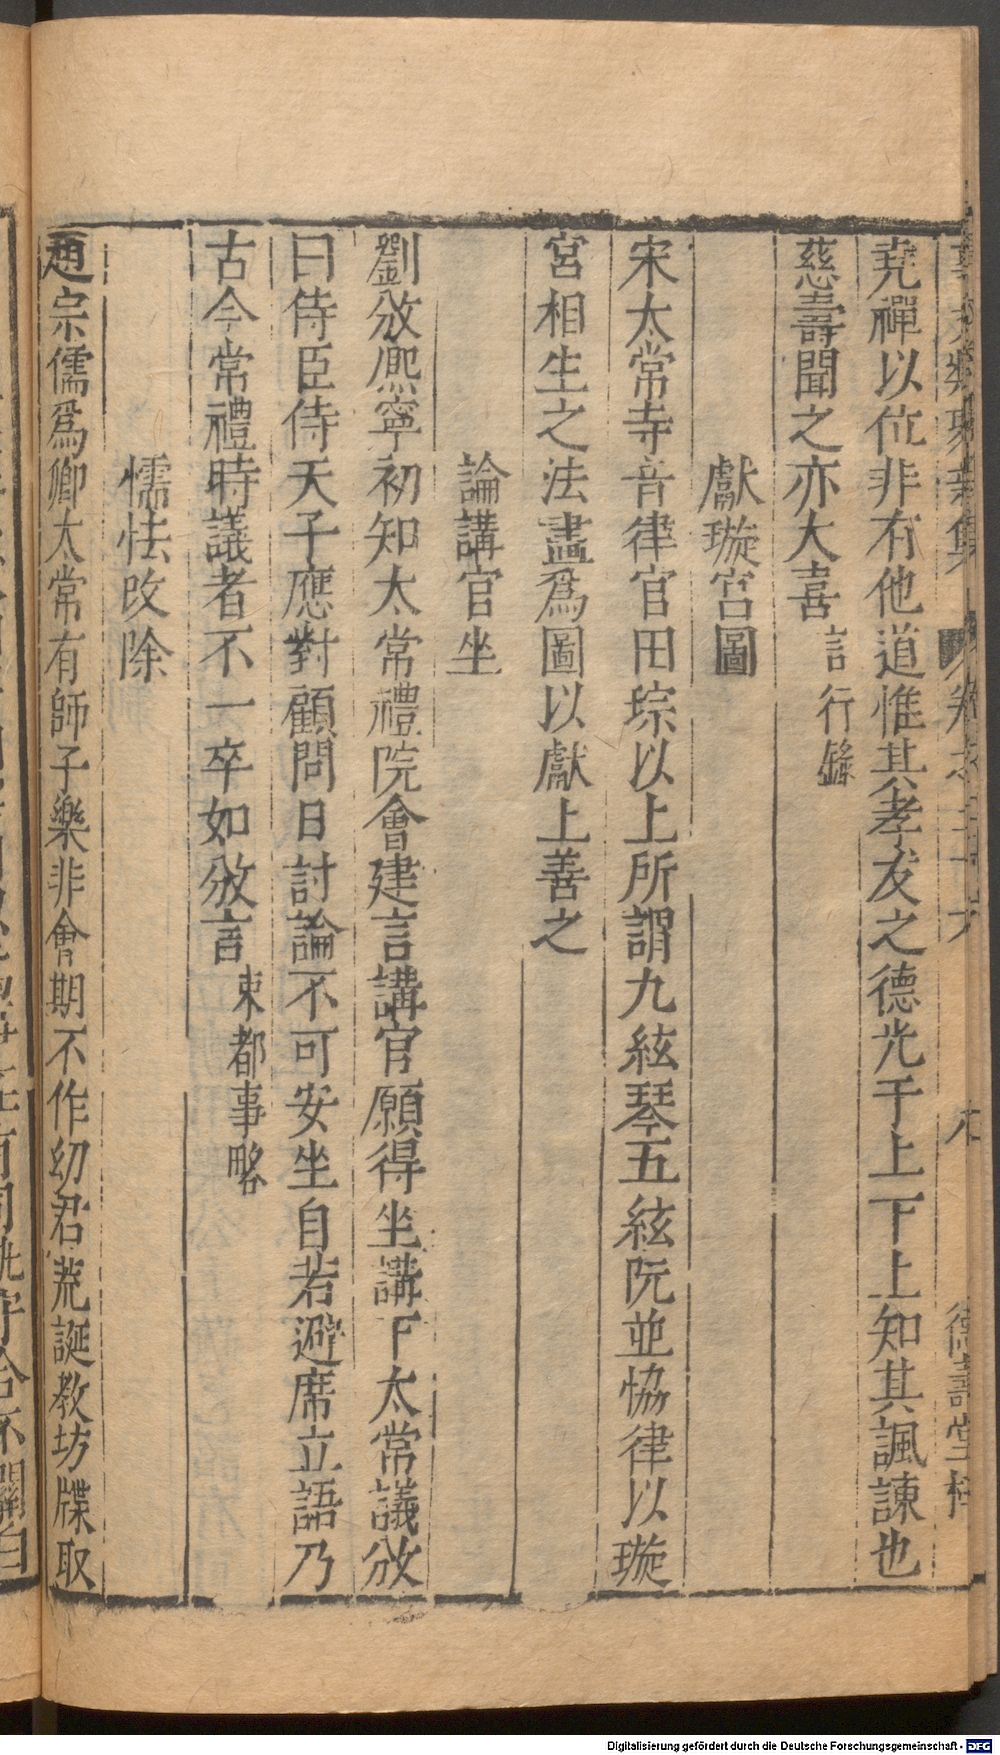 堯禪以位非有他道惟其孝友之德光于上下上知其諷諫也
慈壽聞之亦大喜言行錄
獻璇宮圖
宋太常寺音律官田琮以上所謂九絃琴五絃阮並恊律以璇
宮相生之法畫爲圖以獻上善之
論講官坐
劉攽熈寧初知太常禮院會建言講官願得坐講下太常議攽
曰侍臣侍天子應對顧問日討論不可安坐自若避席立語乃
古今常禮時議者不一卒如攽言東都事略
懦怯改除
趙宗儒爲卿太常有師子樂非會期不作幼君荒誕教坊牒取
Digitalisierung gefördert durch die Deutsche Forschungsgemeinschaft - DFG